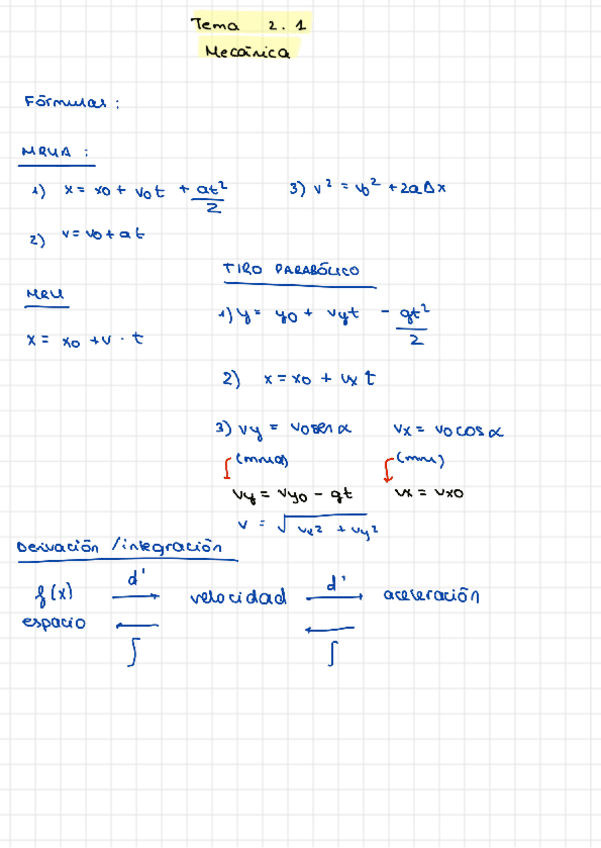 Tema 2.1
Mecánica
Fórmulas :
MRUA :
1) x = x0 + v0t + at²/2
3) v² = v0² + 2aΔx
2) v = v0 + at
TIRO PARABÓLICO
1) y = y0 + vyt - gt²/2
MRU
x = x0 + v · t
2) x = x0 + vx t
3) vy = v0 sen α vx = v0 cos α
(mrua) (mru)
vy = vy0 - gt vx = vx0
v = √vx² + vy²
Derivación /integración
f(x) d' velocidad d' aceleración
espacio
∫ ∫